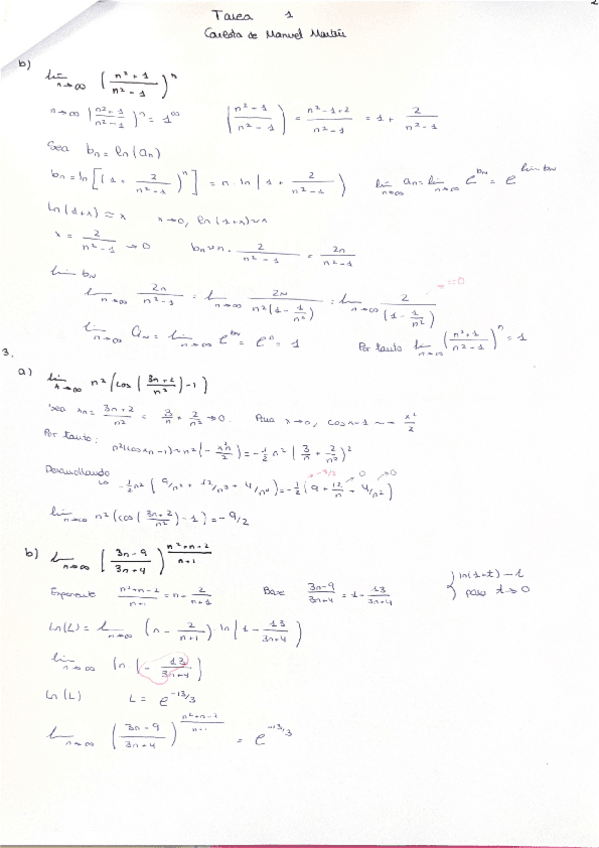 2
Tarea 1
Carlota de Manuel Martín
b)
lim n→∞ ((n²+1)/(n²-1))^n
n→∞ ((n²+1)/(n²-1))^n = 1^∞ ((n²-1)/(n²-1)) = (n²-1+2)/(n²-1) = 1 + 2/(n²-1)
Sea bn = ln(an)
bn = ln[(1 + 2/(n²-1))^n] = n · ln(1 + 2/(n²-1)) lim n→∞ an = lim n→∞ e^bn = e^lim bn
ln(1+x) ≈ x x→0, ln(1+x)≈x
x = 2/(n²-1) → 0 bn≈n · 2/(n²-1) = 2n/(n²-1)
lim bn
lim n→∞ 2n/(n²-1) = lim n→∞ 2n/(n²(1-1/n²)) = lim n→∞ 2/(1-1/n²) →=0
lim n→∞ an = lim n→∞ e^bn = e^0 = 1 Por tanto lim n→∞ ((n²+1)/(n²-1))^n = 1
3.
a) lim n→∞ n²(cos((3n+2)/n²)-1)
Sea xn = (3n+2)/n² = 3/n + 2/n² → 0. Para x→0, cosx-1 ~ - x²/2
Por tanto: n²(cosxn-1)~n²(-x²n/2) = -1/2 n² (3/n + 2/n²)²
Desarrollando
↳ -1/2 n² (9/n² + 12/n³ + 4/n⁴) = -1/2 (9 + 12/n + 4/n²) → -9/2 →0 →0
lim n→∞ n²(cos((3n+2)/n²)-1) = -9/2
b) lim n→∞ ((3n-9)/(3n+4))^((n²+n-2)/(n+1))
Exponente (n²+n-2)/(n+1) = n - 2/(n+1) Base (3n-9)/(3n+4) = 1 - 13/(3n+4) } ln(1+t) ~ t para t→0
ln(L) = lim n→∞ (n - 2/(n+1)) ln(1 - 13/(3n+4))
lim n→∞ (n · (-13/(3n+4)))
ln(L) L = e^(-13/3)
lim n→∞ ((3n-9)/(3n+4))^((n²+n-2)/(n+1)) = e^(-13/3)